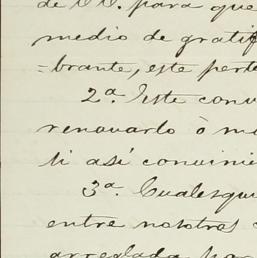 de VV. para que
medio de gratif
=brante, este perte
2ª. Este conv
renovarlo ò mo
si así convinie
3ª. Cualesqui
entre nosotros
arreglada por